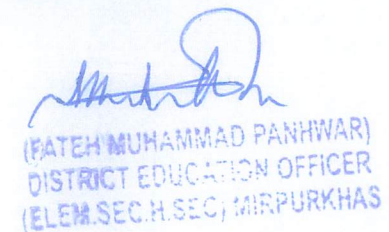 (FATEH MUHAMMAD PANHWAR)
DISTRICT EDUCATION OFFICER
(ELEM.SEC.H.SEC) MIRPURKHAS